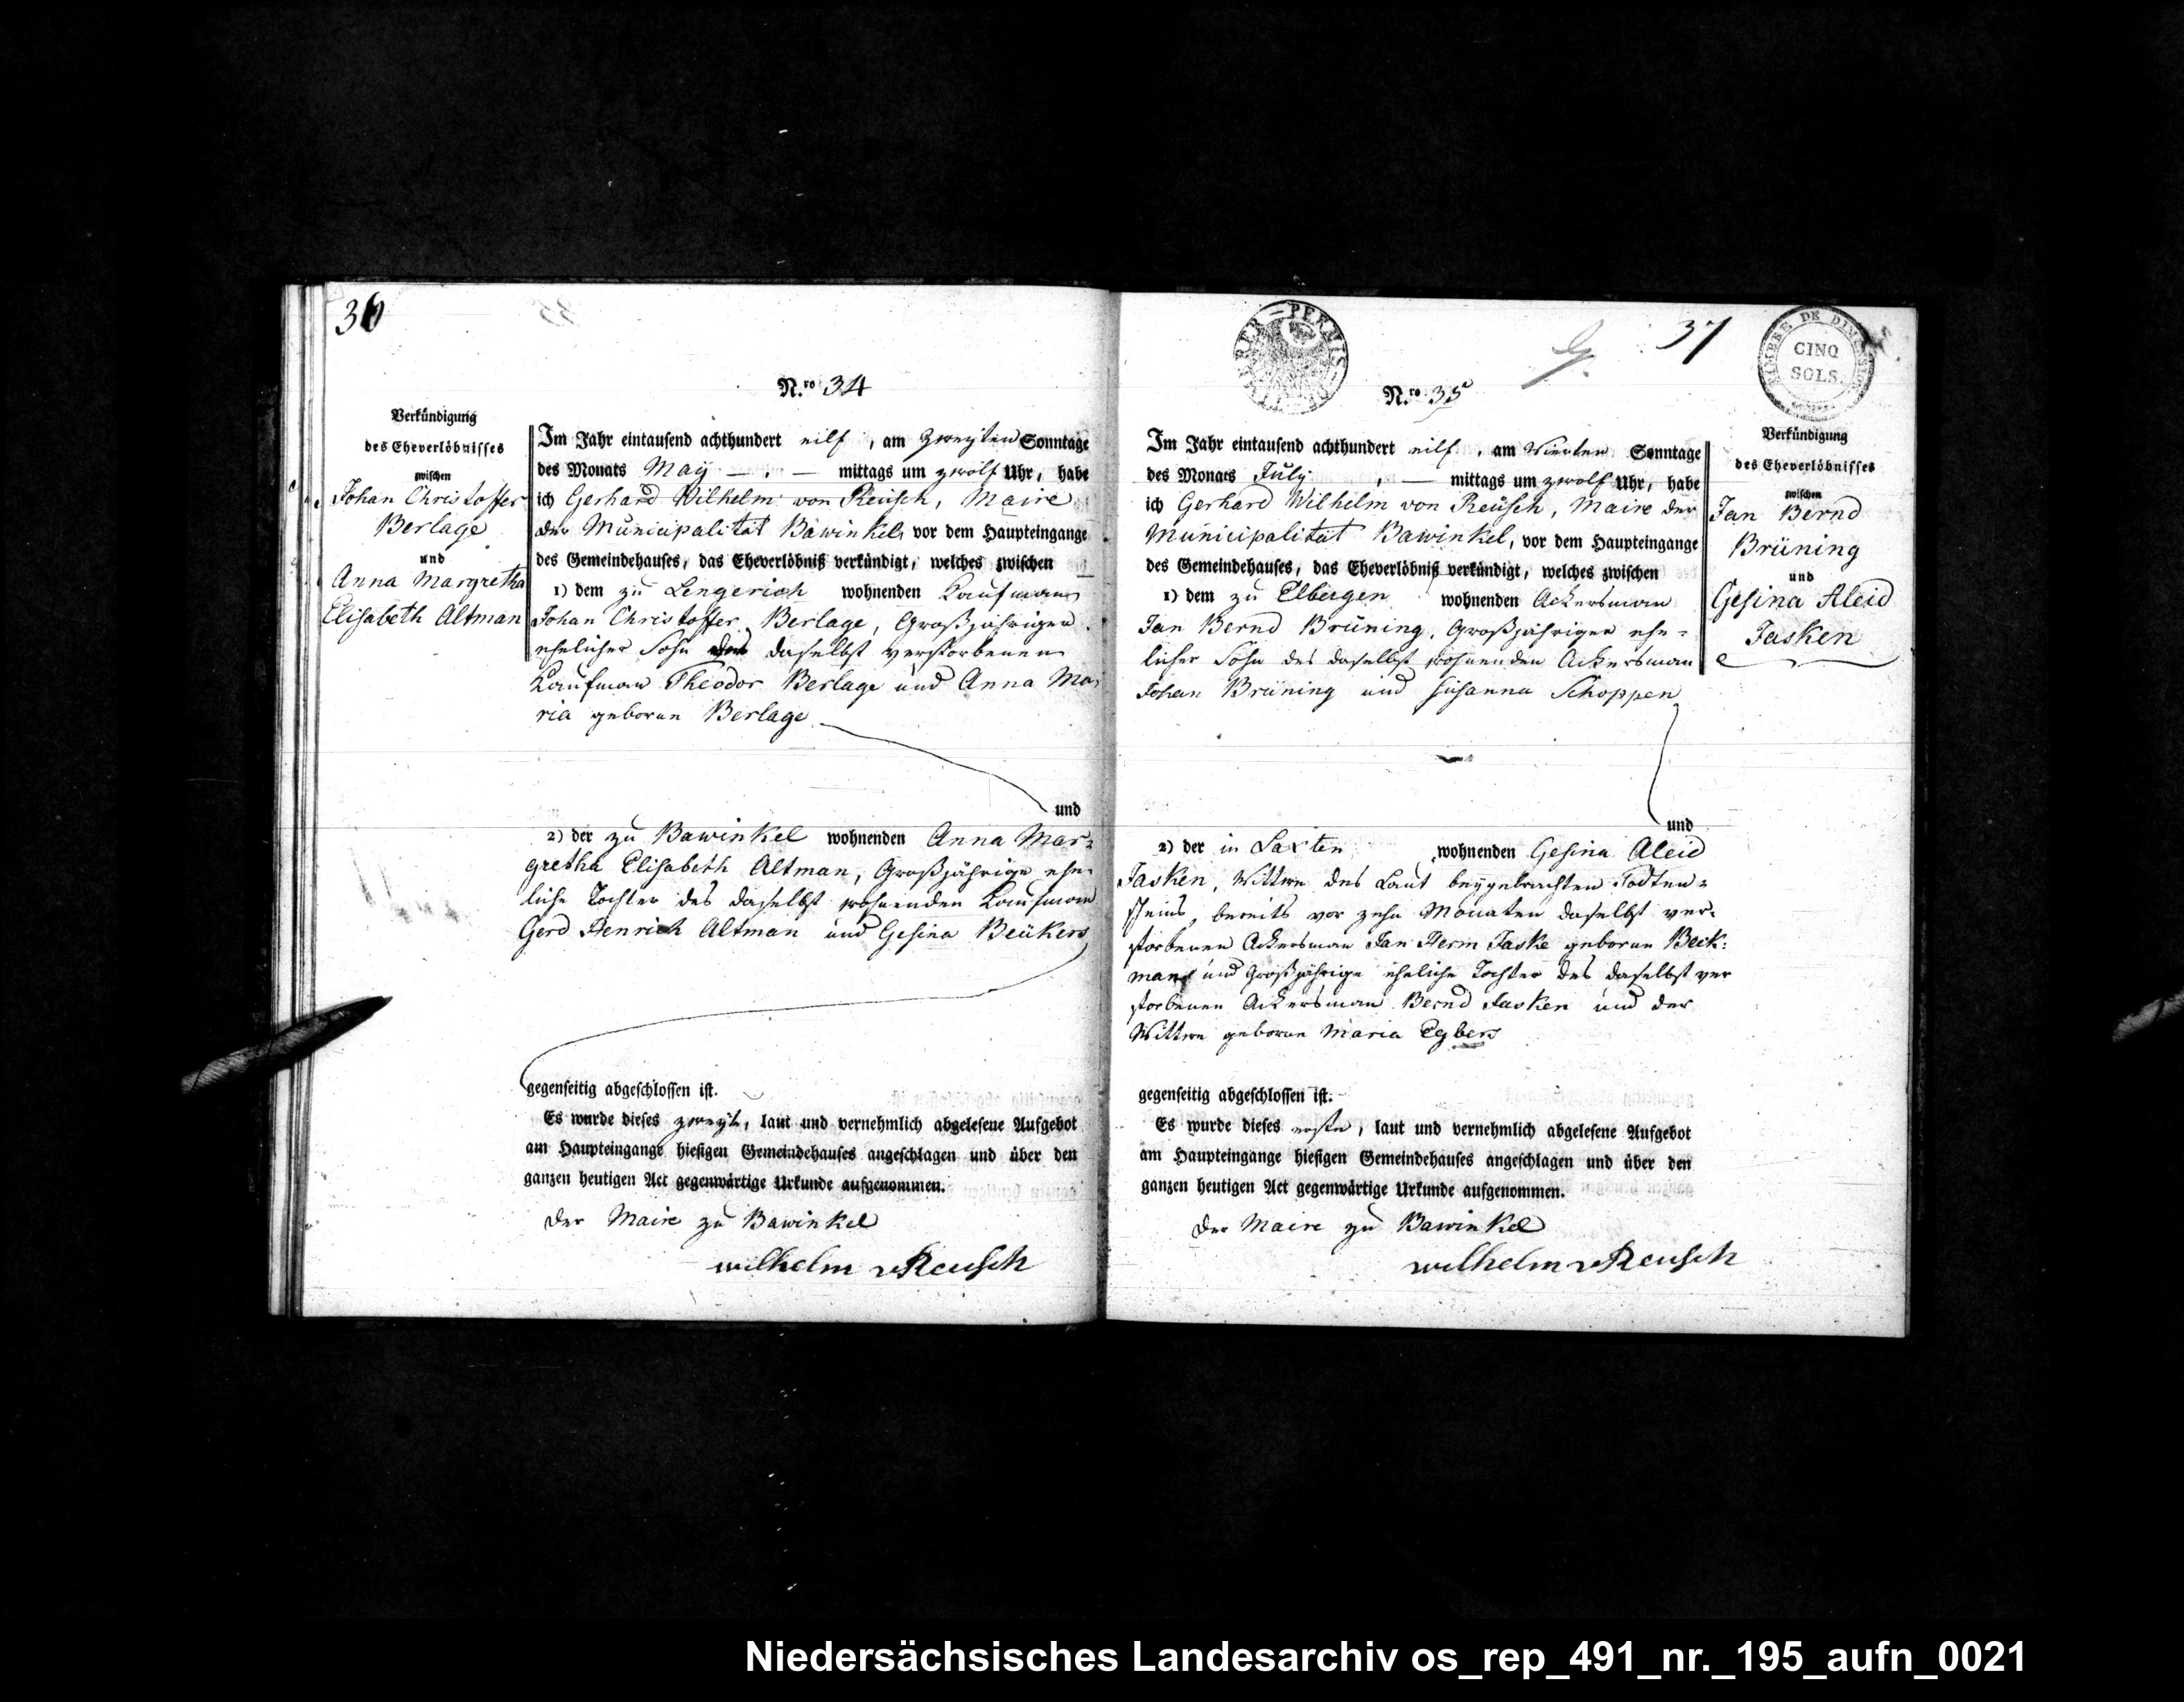 36
N.ro 34
Verkündigung
des Eheverlöbnisses
zwischen
Johan Christoffer
Berlage
und
Anna Margretha
Elisabeth Altman
Im Jahr eintausend achthundert eilf, am zweyten Sonntage
des Monats May — . — mittags um zwölf Uhr, habe
ich Gerhard Wilhelm von Reüsch, Maire
der Municipalität Bawinkel, vor dem Haupteingange
des Gemeindehauses, das Eheverlöbniß verkündigt, welches zwischen
1) dem zu Lengerich wohnenden Kaufmann
Johan Christoffer Berlage, Großjähriger
ehelicher Sohn des daselbst verstorbenen
Kaufman Theodor Berlage und Anna Ma=
ria geboren Berlage
und
2) der zu Bawinkel wohnenden Anna Mar=
gretha Elisabeth Altman, Großjährige ehe=
liche Tochter des daselbst wohnenden Kaufman
Gerd Henrich Altman und Gesina Beükers
gegenseitig abgeschlossen ist.
Es wurde dieses zweyte, laut und vernehmlich abgelesene Aufgebot
am Haupteingange hiesigen Gemeindehauses angeschlagen und über den
ganzen heutigen Act gegenwärtige Urkunde aufgenommen.
Der Maire zu Bawinkel
wilhelm vReusch
37
TIMBRE DE DIMENSION
CINQ
SOLS.
N.ro 35
Verkündigung
des Eheverlöbnisses
zwischen
Jan Bernd
Brüning
und
Gesina Aleid
Jasken
Im Jahr eintausend achthundert eilf, am Vierten Sonntage
des Monats July , — mittags um zwölf Uhr, habe
ich Gerhard Wilhelm von Reüsch, Maire der
Municipalität Bawinkel, vor dem Haupteingange
des Gemeindehauses, das Eheverlöbniß verkündigt, welches zwischen
1) dem zu Elbergen wohnenden Ackersman
Jan Bernd Brüning, Großjähriger ehe=
licher Sohn des daselbst wohnenden Ackersman
Johan Brüning und Susanna Schoppen
und
2) der in Laxten wohnenden Gesina Aleid
Jasken, Wittwe des Laut beygebrachten Todten=
scheins, bereits vor zehn Monaten daselbst ver=
storbenen Ackersman Jan Herm Jaske geboren Beck=
man und Großjährige eheliche Tochter des daselbst ver
storbenen Ackersman Bernd Jasken und der
Wittwe geboren Maria Egbers
gegenseitig abgeschlossen ist.
Es wurde dieses erste, laut und vernehmlich abgelesene Aufgebot
am Haupteingange hiesigen Gemeindehauses angeschlagen und über den
ganzen heutigen Act gegenwärtige Urkunde aufgenommen.
Der Maire zu Bawinkel
wilhelm vReusch
Niedersächsisches Landesarchiv os_rep_491_nr._195_aufn_0021